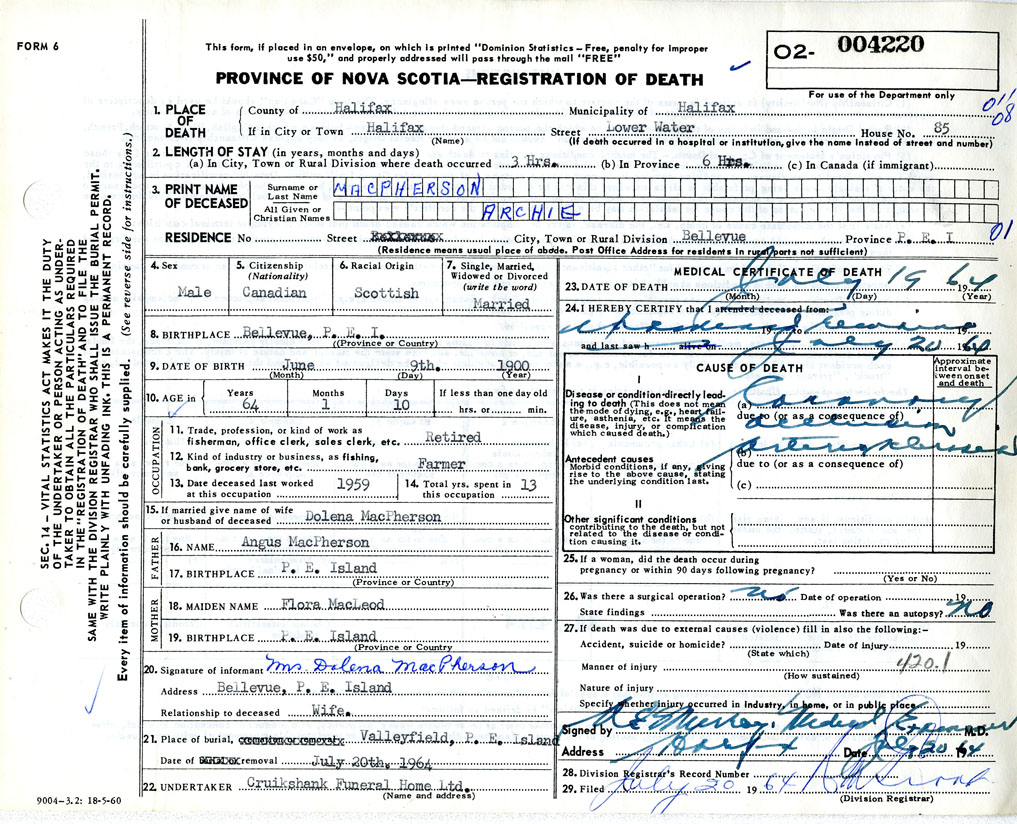 FORM 6
This form, if placed in an envelope, on which is printed "Dominion Statistics – Free, penalty for improper
use $50," and properly addressed will pass through the mail "FREE"
PROVINCE OF NOVA SCOTIA—REGISTRATION OF DEATH
O2- 004220
For use of the Department only
011
08
1. PLACE OF DEATH
County of Halifax Municipality of Halifax
If in City or Town Halifax Street Lower Water House No. 85
(Name) (If death occurred in a hospital or institution, give the name instead of street and number)
2. LENGTH OF STAY (in years, months and days)
(a) In City, Town or Rural Division where death occurred 3 Hrs. (b) In Province 6 Hrs. (c) In Canada (if immigrant)
3. PRINT NAME OF DECEASED
Surname or Last Name MACPHERSON
All Given or Christian Names ARCHIE
RESIDENCE No Street City, Town or Rural Division Bellevue Province P. E. I
01
(Residence means usual place of abode. Post Office Address for residents in rural parts not sufficient)
4. Sex
Male
5. Citizenship
(Nationality)
Canadian
6. Racial Origin
Scottish
7. Single, Married,
Widowed or Divorced
(write the word)
Married
8. BIRTHPLACE Bellevue, P. E. I.
((Province or Country)
9. DATE OF BIRTH June 9th. 1900
(Month) (Day) (Year)
10. AGE in
Years Months Days If less than one day old
64 1 10 hrs. or min.
OCCUPATION
11. Trade, profession, or kind of work as
fisherman, office clerk, sales clerk, etc. Retired
12. Kind of industry or business, as fishing,
bank, grocery store, etc. Farmer
13. Date deceased last worked
at this occupation 1959
14. Total yrs. spent in
this occupation 13
15. If married give name of wife
or husband of deceased Dolena MacPherson
FATHER
16. NAME Angus MacPherson
17. BIRTHPLACE P. E. Island
(Province or Country)
MOTHER
18. MAIDEN NAME Flora MacLeod
19. BIRTHPLACE P. E. Island
(Province or Country)
20. Signature of informant Mrs. Dolena MacPherson
Address Bellevue, P. E. Island
Relationship to deceased Wife.
21. Place of burial, Valleyfield, P. E. Island
Date of removal July 20th, 1964
22. UNDERTAKER Cruikshank Funeral Home Ltd.
(Name and address)
MEDICAL CERTIFICATE OF DEATH
23. DATE OF DEATH July 19 64
(Month) (Day) (Year)
24. I HEREBY CERTIFY that I attended deceased from:
19 to 19
and last saw h alive on July 20 1964
CAUSE OF DEATH
Approximate
interval be-
tween onset
and death
I
Disease or condition directly lead-
ing to death (This does not mean
the mode of dying, e.g., heart fail-
ure, asthenia, etc. It means the
disease, injury, or complication
which caused death.)
(a) Coronary
due to (or as a consequence of)
occlusion
Antecedent causes
Morbid conditions, if any, giving
rise to the above cause, stating
the underlying condition last.
(b)
due to (or as a consequence of)
(c)
II
Other significant conditions
contributing to the death, but not
related to the disease or condi-
tion causing it.
25. If a woman, did the death occur during
pregnancy or within 90 days following pregnancy?
(Yes or No)
26. Was there a surgical operation? No Date of operation 19
State findings Was there an autopsy? No
27. If death was due to external causes (violence) fill in also the following:-
Accident, suicide or homicide? Date of injury 19
(State which)
420.1
Manner of injury
(How sustained)
Nature of injury
Specify whether injury occurred in Industry, in home, or in public place
Signed by Murray Medical Examiner M.D.
Address Date July 20 64
28. Division Registrar's Record Number
29. Filed July 20 1964
(Division Registrar)
SEC. 14 – VITAL STATISTICS ACT MAKES IT THE DUTY
OF THE UNDERTAKER OR PERSON ACTING AS UNDER-
TAKER TO OBTAIN ALL THE PARTICULARS REQUIRED
IN THE "REGISTRATION OF DEATH" AND TO FILE THE
SAME WITH THE DIVISION REGISTRAR WHO SHALL ISSUE THE BURIAL PERMIT.
WRITE PLAINLY WITH UNFADING INK. THIS IS A PERMANENT RECORD.
Every item of information should be carefully supplied. (See reverse side for instructions.)
9004-3.2: 18-5-60